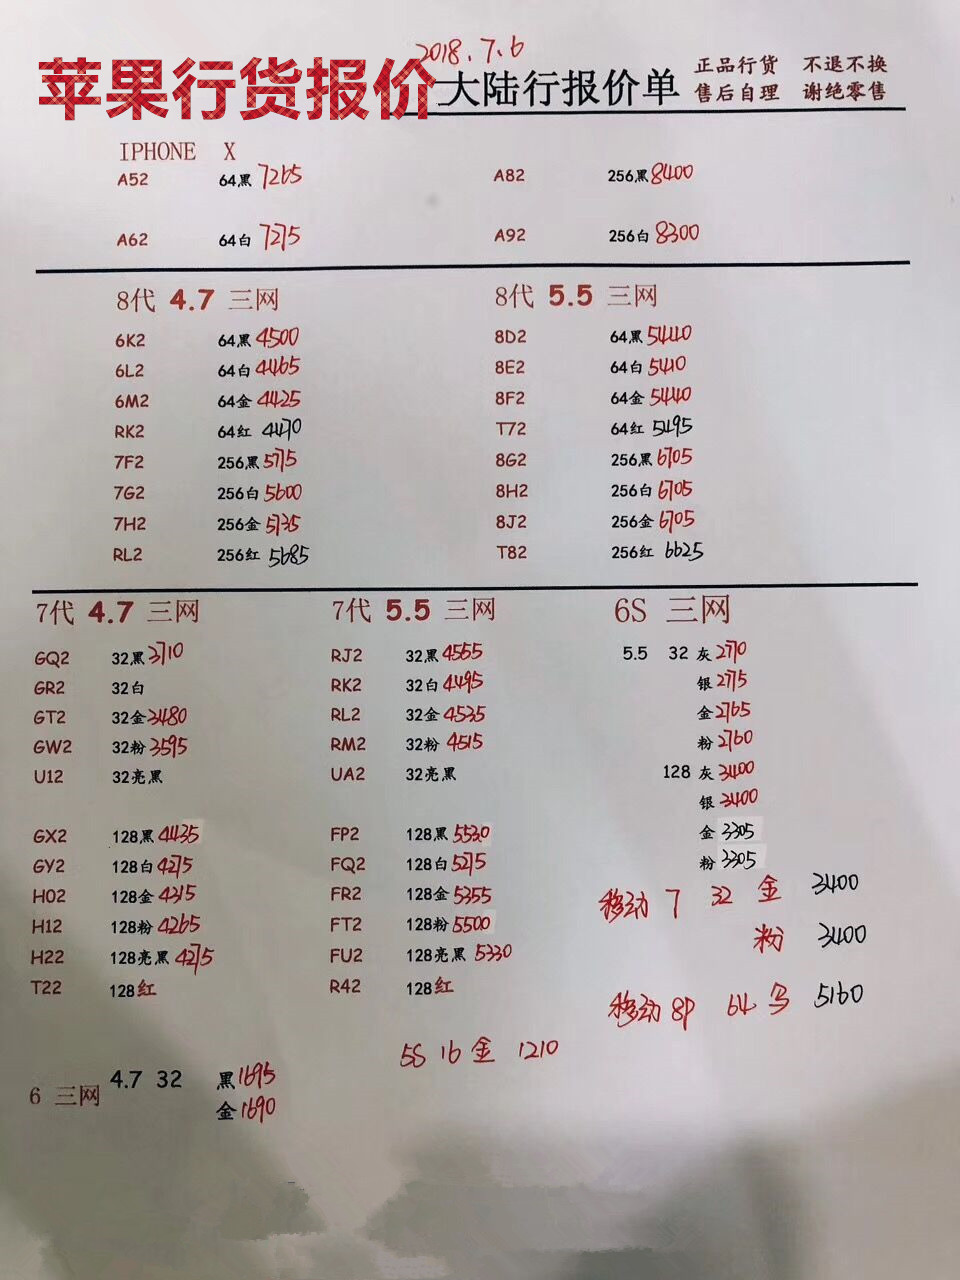 2018.7.6
苹果行货报价 大陆行报价单 正品行货 不退不换
售后自理 谢绝零售
IPHONE X
A52 64黑 7265 A82 256黑 8400
A62 64白 7275 A92 256白 8300
8代 4.7 三网 8代 5.5 三网
6K2 64黑 4500 8D2 64黑 5440
6L2 64白 4465 8E2 64白 5410
6M2 64金 4425 8F2 64金 5440
RK2 64红 4470 T72 64红 5495
7F2 256黑 5775 8G2 256黑 6705
7G2 256白 5600 8H2 256白 6705
7H2 256金 5735 8J2 256金 6705
RL2 256红 5685 T82 256红 6625
7代 4.7 三网 7代 5.5 三网 6S 三网
GQ2 32黑 3710 RJ2 32黑 4565 5.5 32 灰 2770
GR2 32白 RK2 32白 4495 银 2775
GT2 32金 3480 RL2 32金 4535 金 2765
GW2 32粉 3595 RM2 32粉 4515 粉 2760
U12 32亮黑 UA2 32亮黑 128 灰 3400
银 3400
GX2 128黑 4435 FP2 128黑 5530 金 3305
GY2 128白 4275 FQ2 128白 5275 粉 3305
H02 128金 4315 FR2 128金 5355 移动 7 32 金 3400
H12 128粉 4265 FT2 128粉 5500 粉 3400
H22 128亮黑 4275 FU2 128亮黑 5330
T22 128红 R42 128红 移动 8P 64 5160
5S 16 金 1210
6 三网 4.7 32 黑 1695
金 1690